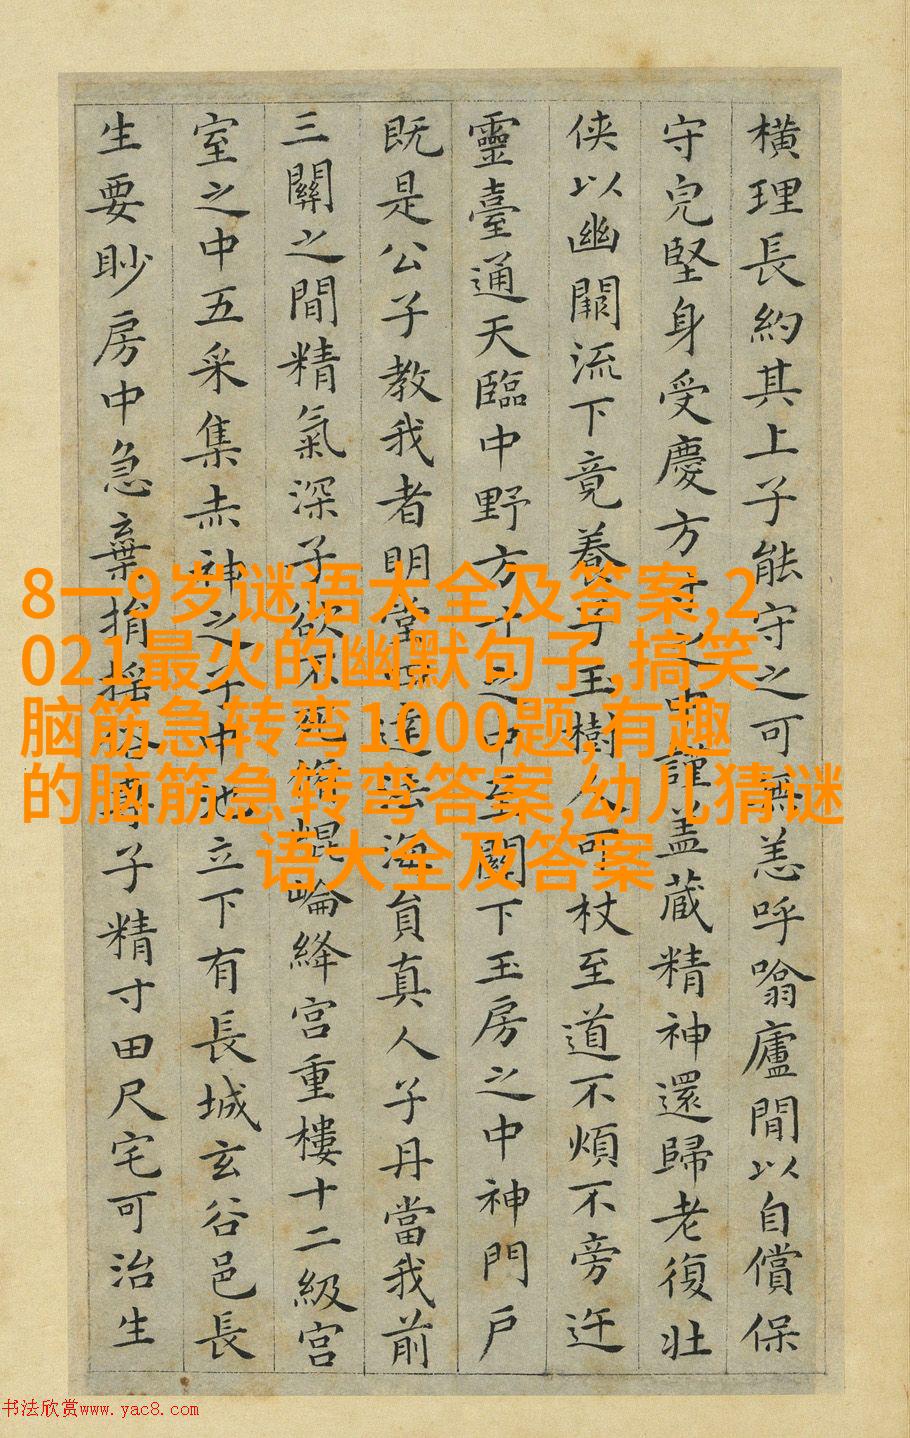 橫理長約其上子能守之可無恙呼噏廬間以自償保
守皃堅身受慶方寸之中謹盖蔵精神還歸老復壯
俠以幽闕流下竟養子玉樹人可杖至道不煩不旁迕
靈臺通天臨中野方寸之中至關下玉房之中神門戶
既是公子教我者明堂四達法海員真人子丹當我前
三關之間精氣深子欲不死脩崐崘絳宮重樓十二級宮
室之中五采集赤神之子中池立下有長城玄谷邑長
生要眇房中急棄捐揺俗專子精寸田尺宅可治生
8一9岁谜语大全及答案,2
021最火的幽默句子,搞笑
脑筋急转弯1000题,有趣
的脑筋急转弯答案,幼儿猜谜
语大全及答案
书法欣赏www.yac8.com